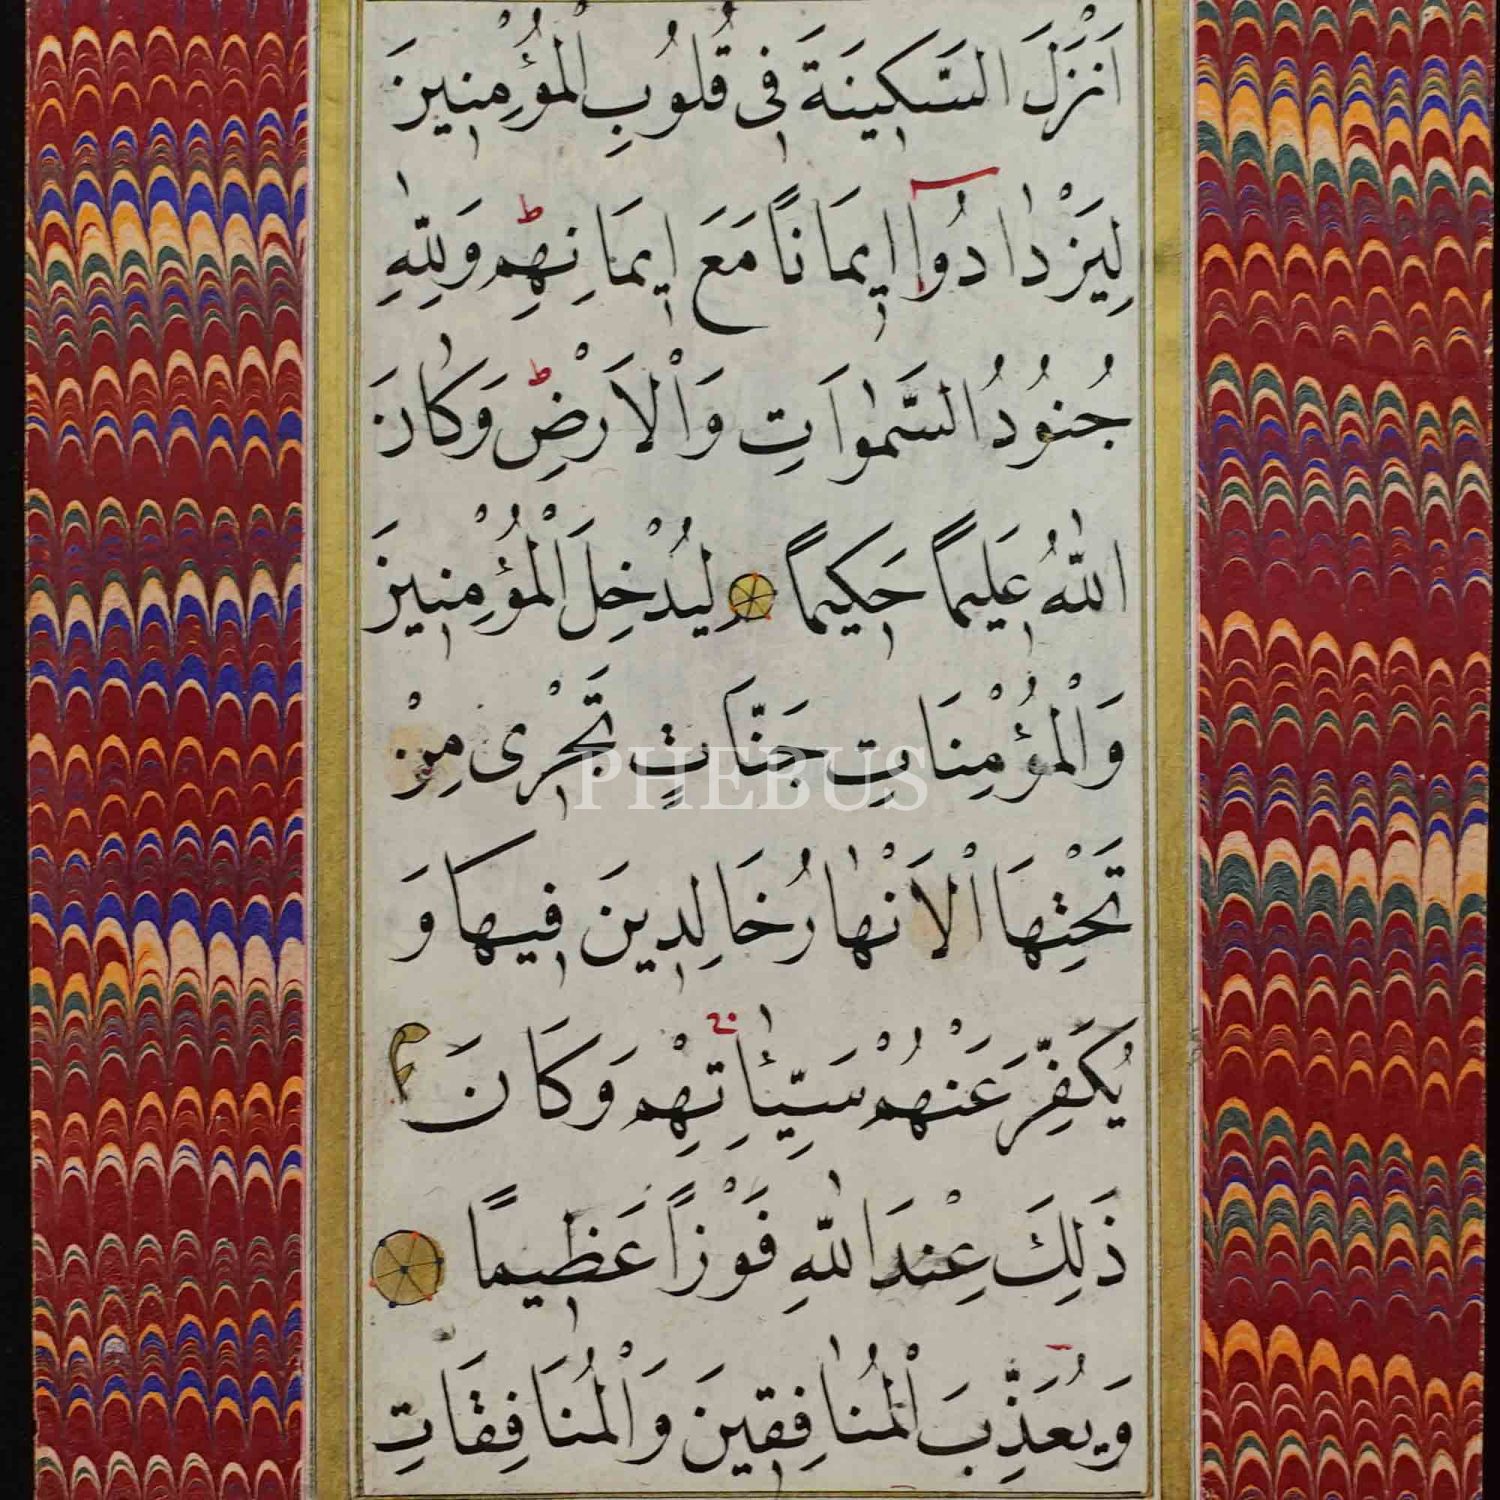 اَنْزَلَ السَّكٖينَةَ فٖى قُلُوبِ الْمُؤْمِنٖينَ
لِيَزْدٰادُوٓا اٖيمَانًا مَعَ اٖيمَانِهِمْ ط وَلِلّٰهِ
جُنُودُ السَّمٰوَاتِ وَالْاَرْضِ ط وَكَانَ
اللّٰهُ عَلٖيمًا حَكٖيمًا لِيُدْخِلَ الْمُؤْمِنٖينَ
وَالْمُؤْمِنَاتِ جَنَّاتٍ تَجْرٖى مِنْ
تَحْتِهَا الْاَنْهٰارُ خَالِدٖينَ فٖيهَا وَ
يُكَفِّرَ عَنْهُمْ سَيِّئٰاتِهِمْ وَكَانَ
ذَلِكَ عِنْدَ اللّٰهِ فَوْزًا عَظٖيمًا
وَيُعَذِّبَ الْمُنٰافِقٖينَ وَالْمُنَافِقَاتِ
PHEBUS